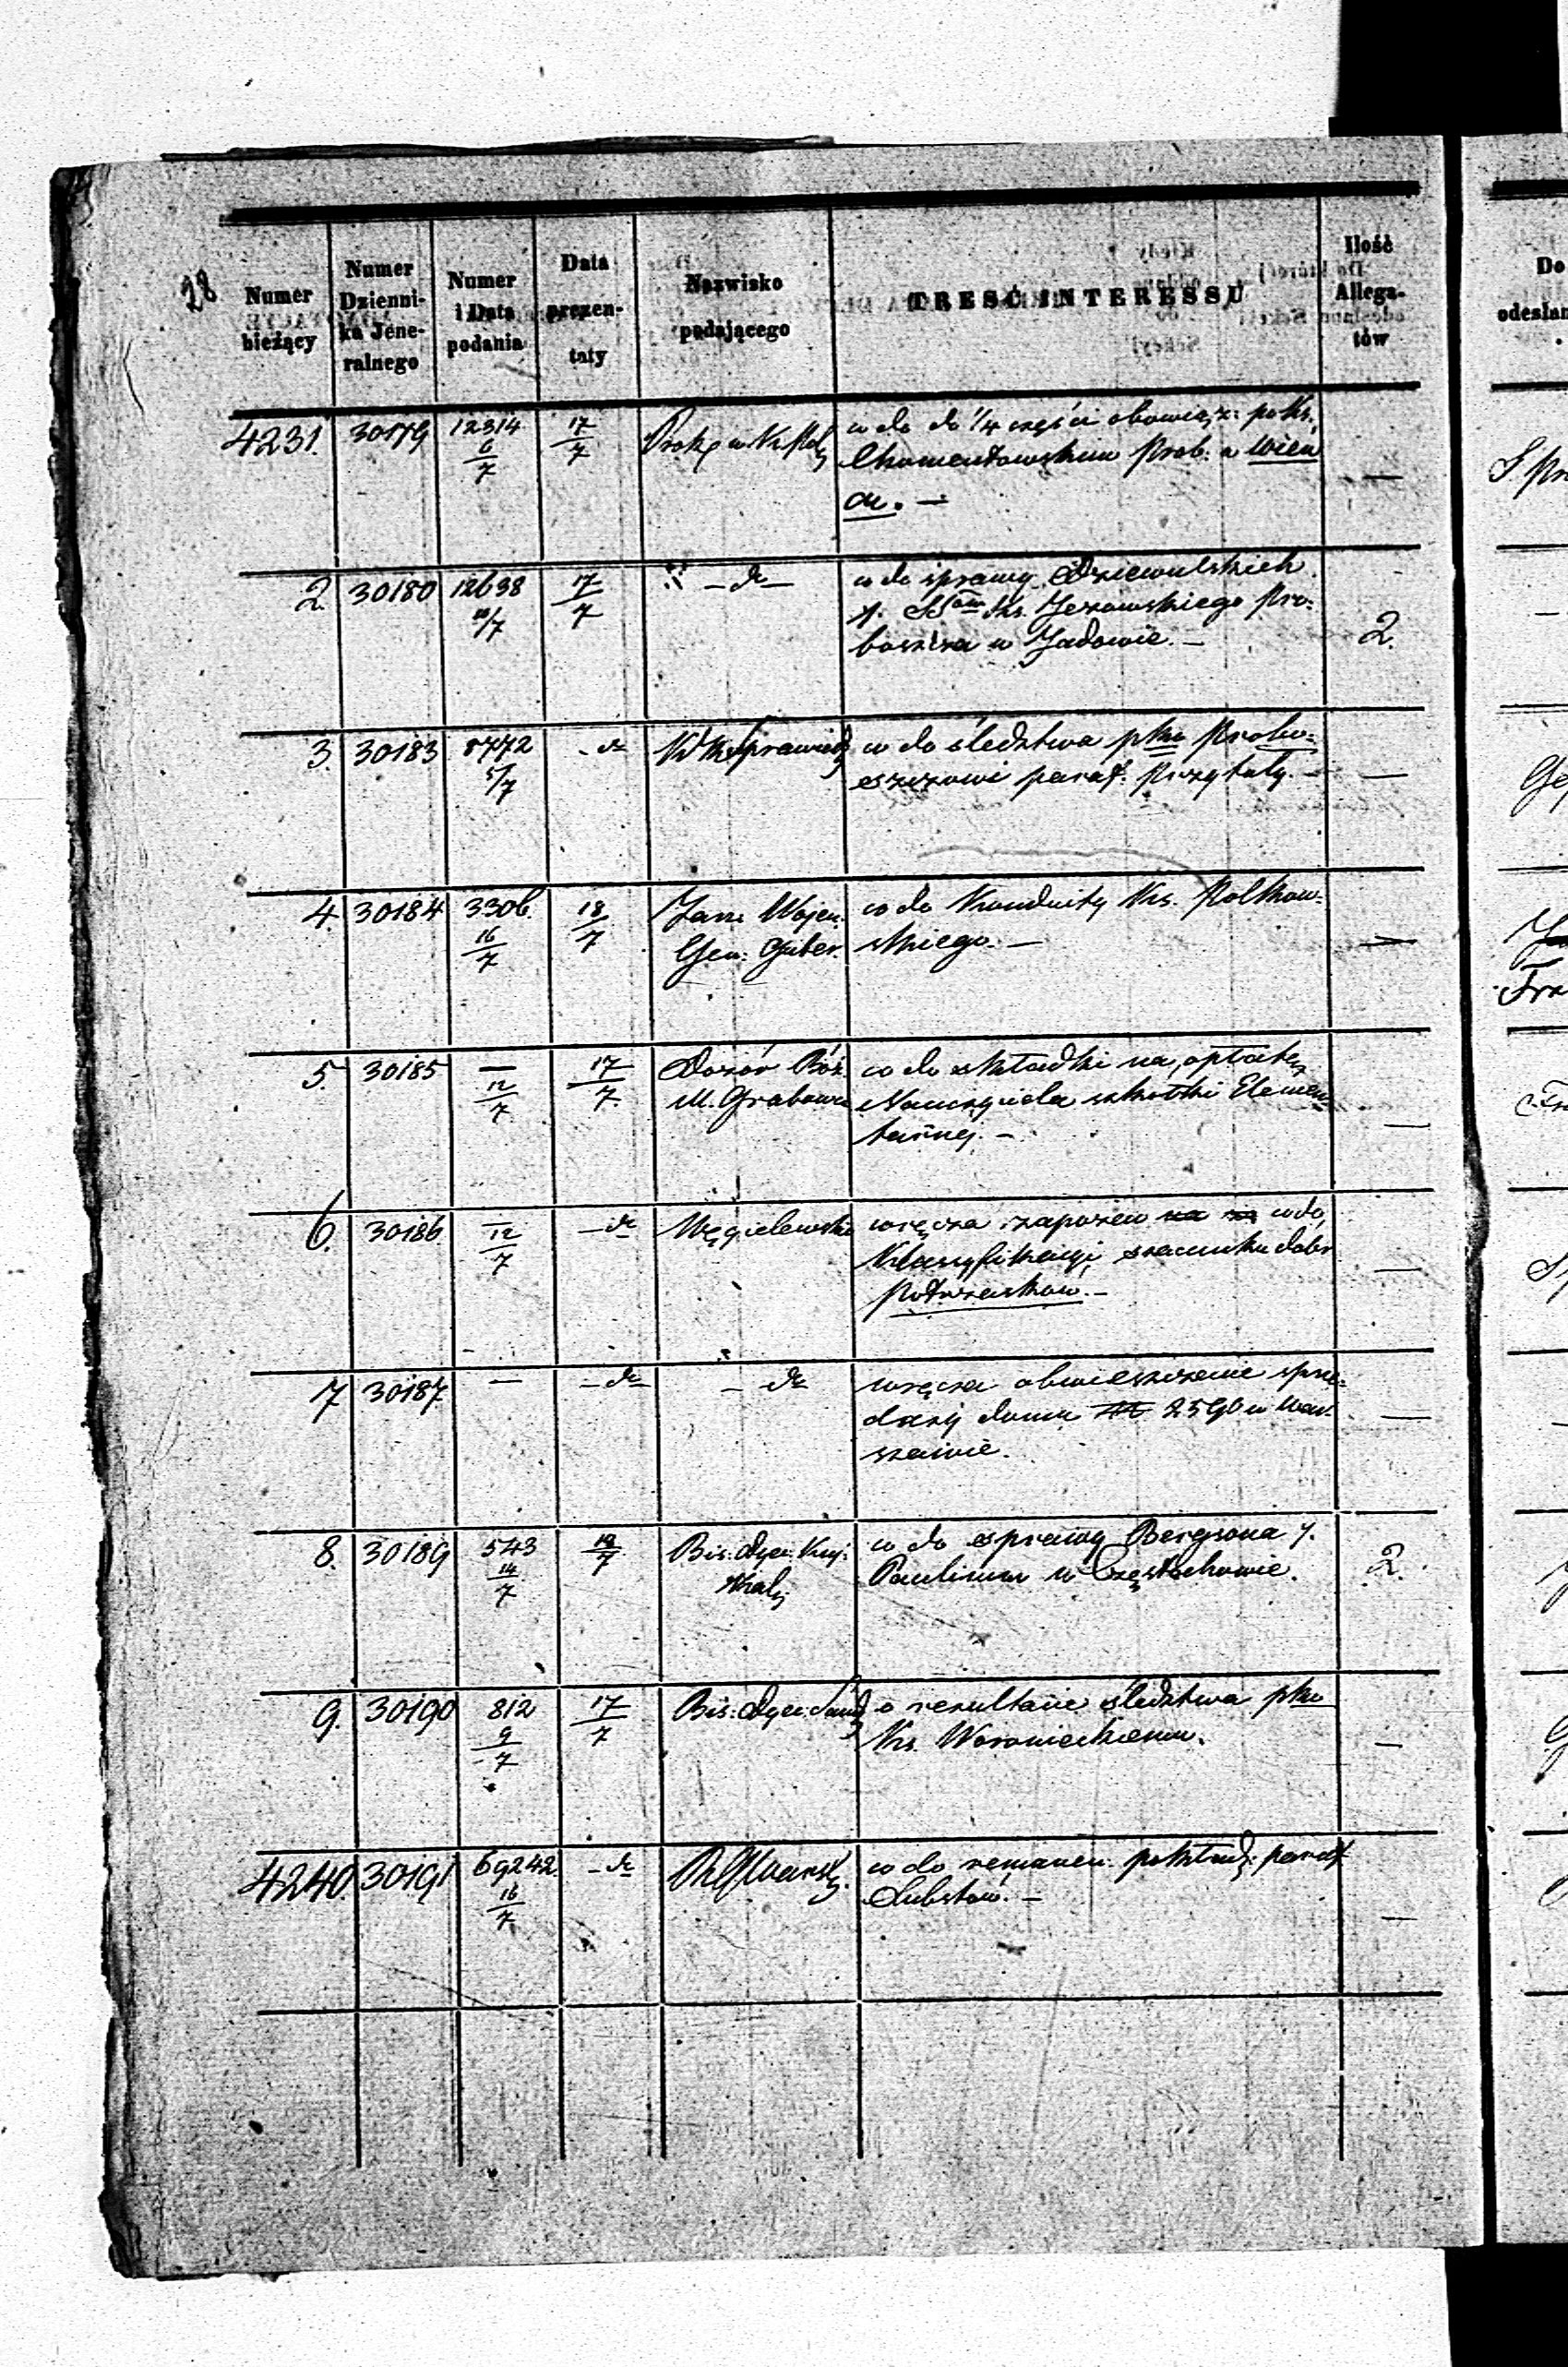 28
Numer bieżący
Numer Dzienni-ka Jene-ralnego
Numer i Data podania
Data prezen-taty
Nazwisko podającego
TREŚĆ INTERESSU
Ilość Allega-tów
Do
odesłan
4231. 30179 12314 6/7 17/7 co do do 1/4 części obowiąz: po Ks.
Chomentowskim Prob: w Wien
—
2. 30180 12638 10/7 17/7 — do — co do sprawy Dziewulskich
Ks. Jezowskiego Pro-
boszcza w Jadowie. — 2.
3. 30183 8772 5/7 - do co do śledztwa pko Probo-
szczowi paraf: Przytuły. — —
4. 30184 3306. 16/7 18/7 Jen: Wojen: co do Konduity Ks. Polkow-
Gen: Guber. skiego. — —
5. 30185 — 12/7 17/7. Dozór Bóż. co do składki na opłatę
M. Grabowa Nauczyciela szkółki Elemen-
tarnej. — —
6. 30186 — 12/7 — do Węgielewski wręcza zapozew co do
Klasyfikacyi szacunku dóbr —
7 30187 — — do — — do wręcza obwieszczenie sprze-
daży domu № 2590 w War- —
szawie.
8. 30189 543 14/7 18/7 Bis: Dyec: Kuj: co do sprawy Bergsona /.
Kal: Paulinom w Częstochowie. 2.
9. 30190 812 9/7 17/7 Bis: Dyec: Sand: o rezultacie śledztwa pko
Ks. Woronieckiemu. —
4240. 30191 69242. 16/7 — do co do remanen: pokład: paraf
Lubstów. — —